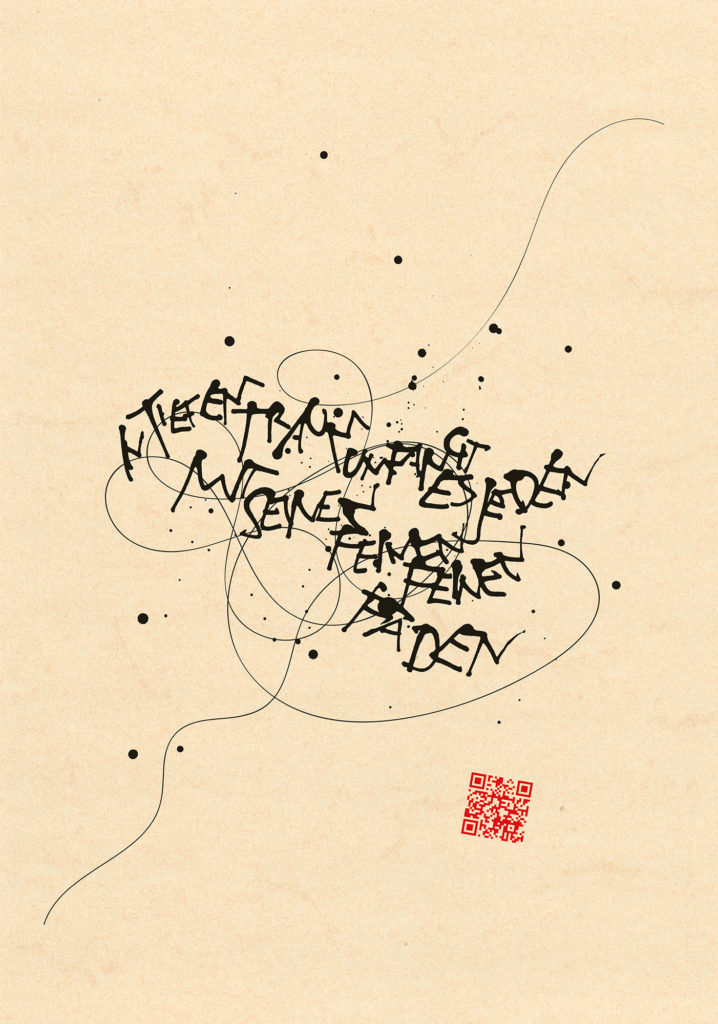 IN TIEFEN TRAUM UMFANGT ES JEDEN
MIT SEINEN FEINEN FEINEN
FADEN